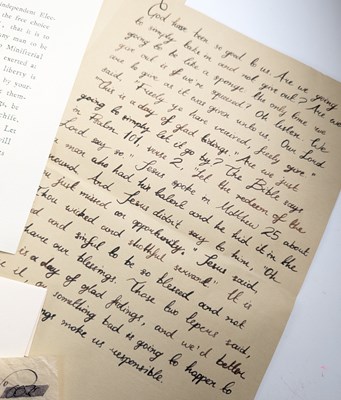 independent Elec-
the free choice
, that it is so
any man to be
Ministerial
exerted a
liberty is
your-
be
chile,
Let
will
God have been so good to us. Are we going
to simply take in and not give out? Are we
going to be like a sponge the only time we
give out is if we're squeezed? Oh listen. We
are to give as it was given unto us. Our Lord
said, "Freely you have received, freely give."
"This is a day of glad tidings." Are we just
going to simply let it go by? The Bible says
Psalm 107, verse 2 "let the redeem of the
Lord say so." Jesus spoke in Matthew 25 about
man who had his talent and he hid it in the
ground. And Jesus didn't say to him, "Oh
you just missed an opportunity." Jesus said,
thou wicked and slothful servant." It is
and sinful to be so blessed and not
share our blessings. Those two lepers said,
is a day of glad tidings, and we'd better
it or something bad is going to happen to
make us responsible.